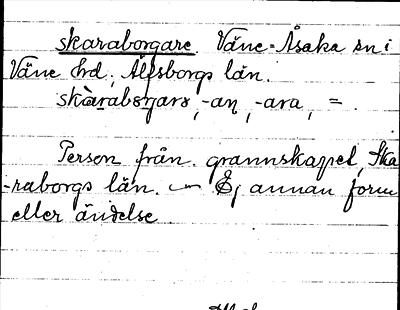 skaraborgare. Väne-Åsaka sn i
Väne hd, Älfsborgs län.
skàrabɷrgarɷ, -an, -ara, =.
Person från grannskapet, Ska
-raborgs län. — Ej annan form
eller ändelse.